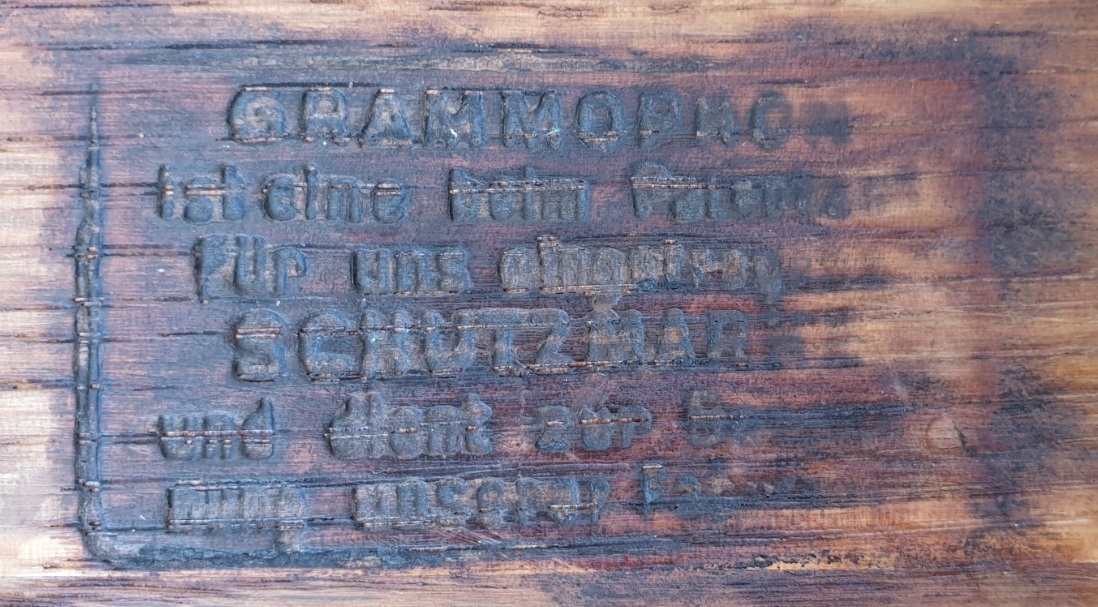 GRAMMOPHO
ist eine beim Patenta
für uns eingetrag
SCHUTZMAR
und dient zur B
nung unserer Fa